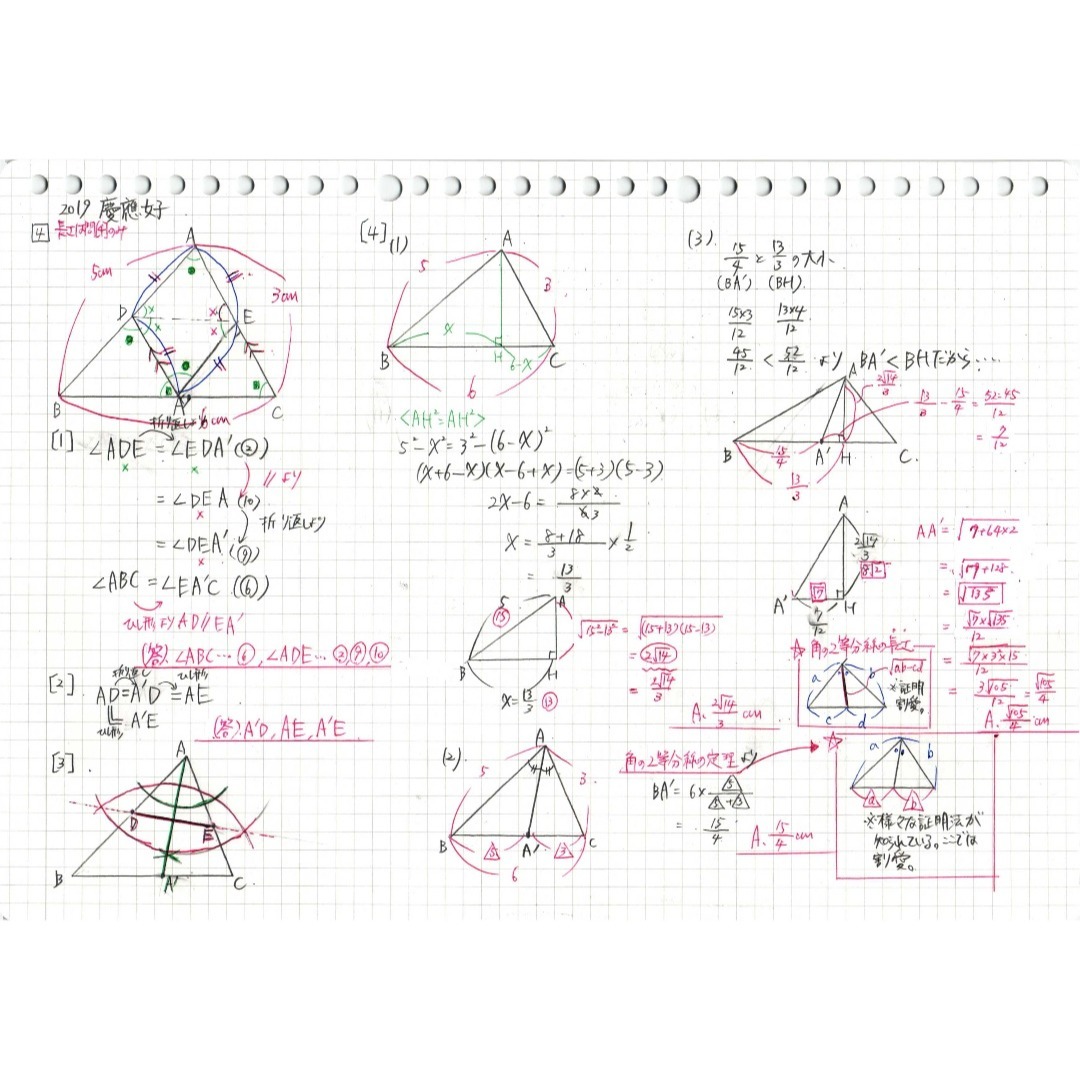 2019 慶應女子
4
A
5cm
3cm
D
E
B
A'
C
6cm
[1] ∠ADE = ∠EDA'(②)
// より
= ∠DEA (⑩)
折り返しより
= ∠DEA' (⑨)
∠ABC = ∠EA'C (⑥)
ひし形よりAD//EA'
(答) ∠ABC…⑥, ∠ADE…②,⑨,⑩
[2]
折り返し ひし形
AD=A'D=AE
A'E
ひし形
(答) A'D, AE, A'E
[3]
A
D
E
B
A'
C
[4] (1)
A
5
3
x
B
H
6-x
C
6
<AH²=AH²>
5²-x²=3²-(6-x)²
(x+6-x)(x-6+x)=(5+3)(5-3)
2x-6 = 8×2/63
x = 8+18/3 × 1/2
= 13/3
5
⑮
A
B
H
x=13/3 ⑬
√15²-13² = √(15+13)(15-13)
= 2√14
= 2√14/3
A. 2√14/3 cm
(2)
A
5
3
B
5
A'
3
C
6
角の2等分線の定理より
BA' = 6× 5/5+3
= 15/4
A. 15/4 cm
(3)
15/4 と 13/3 の大小
(BA') (BH)
15×3/12 13×4/12
45/12 < 52/12 より BA'<BHだから….
A
2√14/3
13/3 - 15/4 = 52-45/12
= 7/12
B
15/4
A'
H
C
13/3
A
2√14/3
8√2
√7
A'
H
7/12
AA' = √7+64×2
= √7+128
= √135
= √7×√135/12
= √7×3²×15/12
= 3√105/12 = √105/4
A. √105/4 cm
☆角の2等分線の長さ
a
b
√ab-cd
※証明
割愛。
c
d
☆
a
b
a
b
※様々な証明法が
知られている。ここでは
割愛。